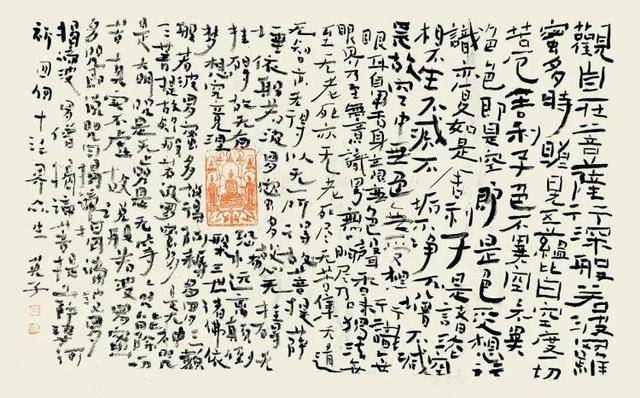 觀自在菩薩行深般若波羅
蜜多時照見五蘊皆空度一切
苦厄舍利子色不異空空不異
色色即是空空即是色受想行
識亦復如是舍利子是諸法空
相不生不滅不垢不淨不增不減
是故空中無色無受想行識無
眼耳鼻舌身意無色聲香味觸法無
眼界乃至無意識界無無明亦無無明盡乃
至无老死亦无老死尽无苦集滅道
无智亦无得以无所得故菩提薩
埵依般若波羅蜜多故心无挂礙无
挂礙故无有恐怖遠離顛倒
梦想究竟涅槃三世諸佛依
般若波羅蜜多故得阿耨多羅三藐
三菩提故知般若波羅蜜多是大神咒
是大明咒是无上咒是无等等咒能除一切
苦真實不虛故說般若波羅蜜
多咒即說咒曰揭諦揭諦波羅
揭諦波羅僧揭諦菩提薩婆訶
祈回向十法界众生